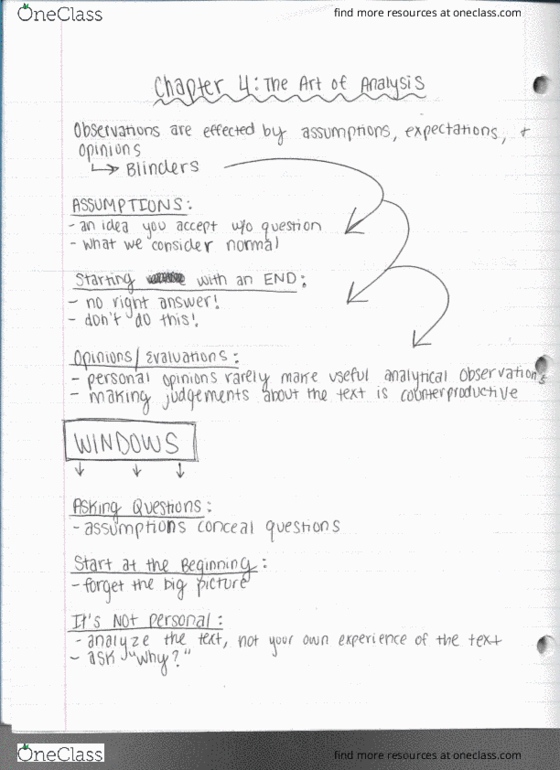 OneClass
find more resources at oneclass.com
Chapter 4: The Art of Analysis
Observations are effected by assumptions, expectations, +
opinions
↳ Blinders
ASSUMPTIONS:
- an idea you accept w/o question
- what we consider normal
Starting with an END:
- no right answer!
- don't do this!
Opinions/Evaluations:
- personal opinions rarely make useful analytical observations
- making judgements about the text is counterproductive
WINDOWS
Asking Questions:
- assumptions conceal questions
Start at the Beginning:
- forget the big picture
It's Not Personal:
- analyze the text, not your own experience of the text
- ask "why?"
OneClass
find more resources at oneclass.com